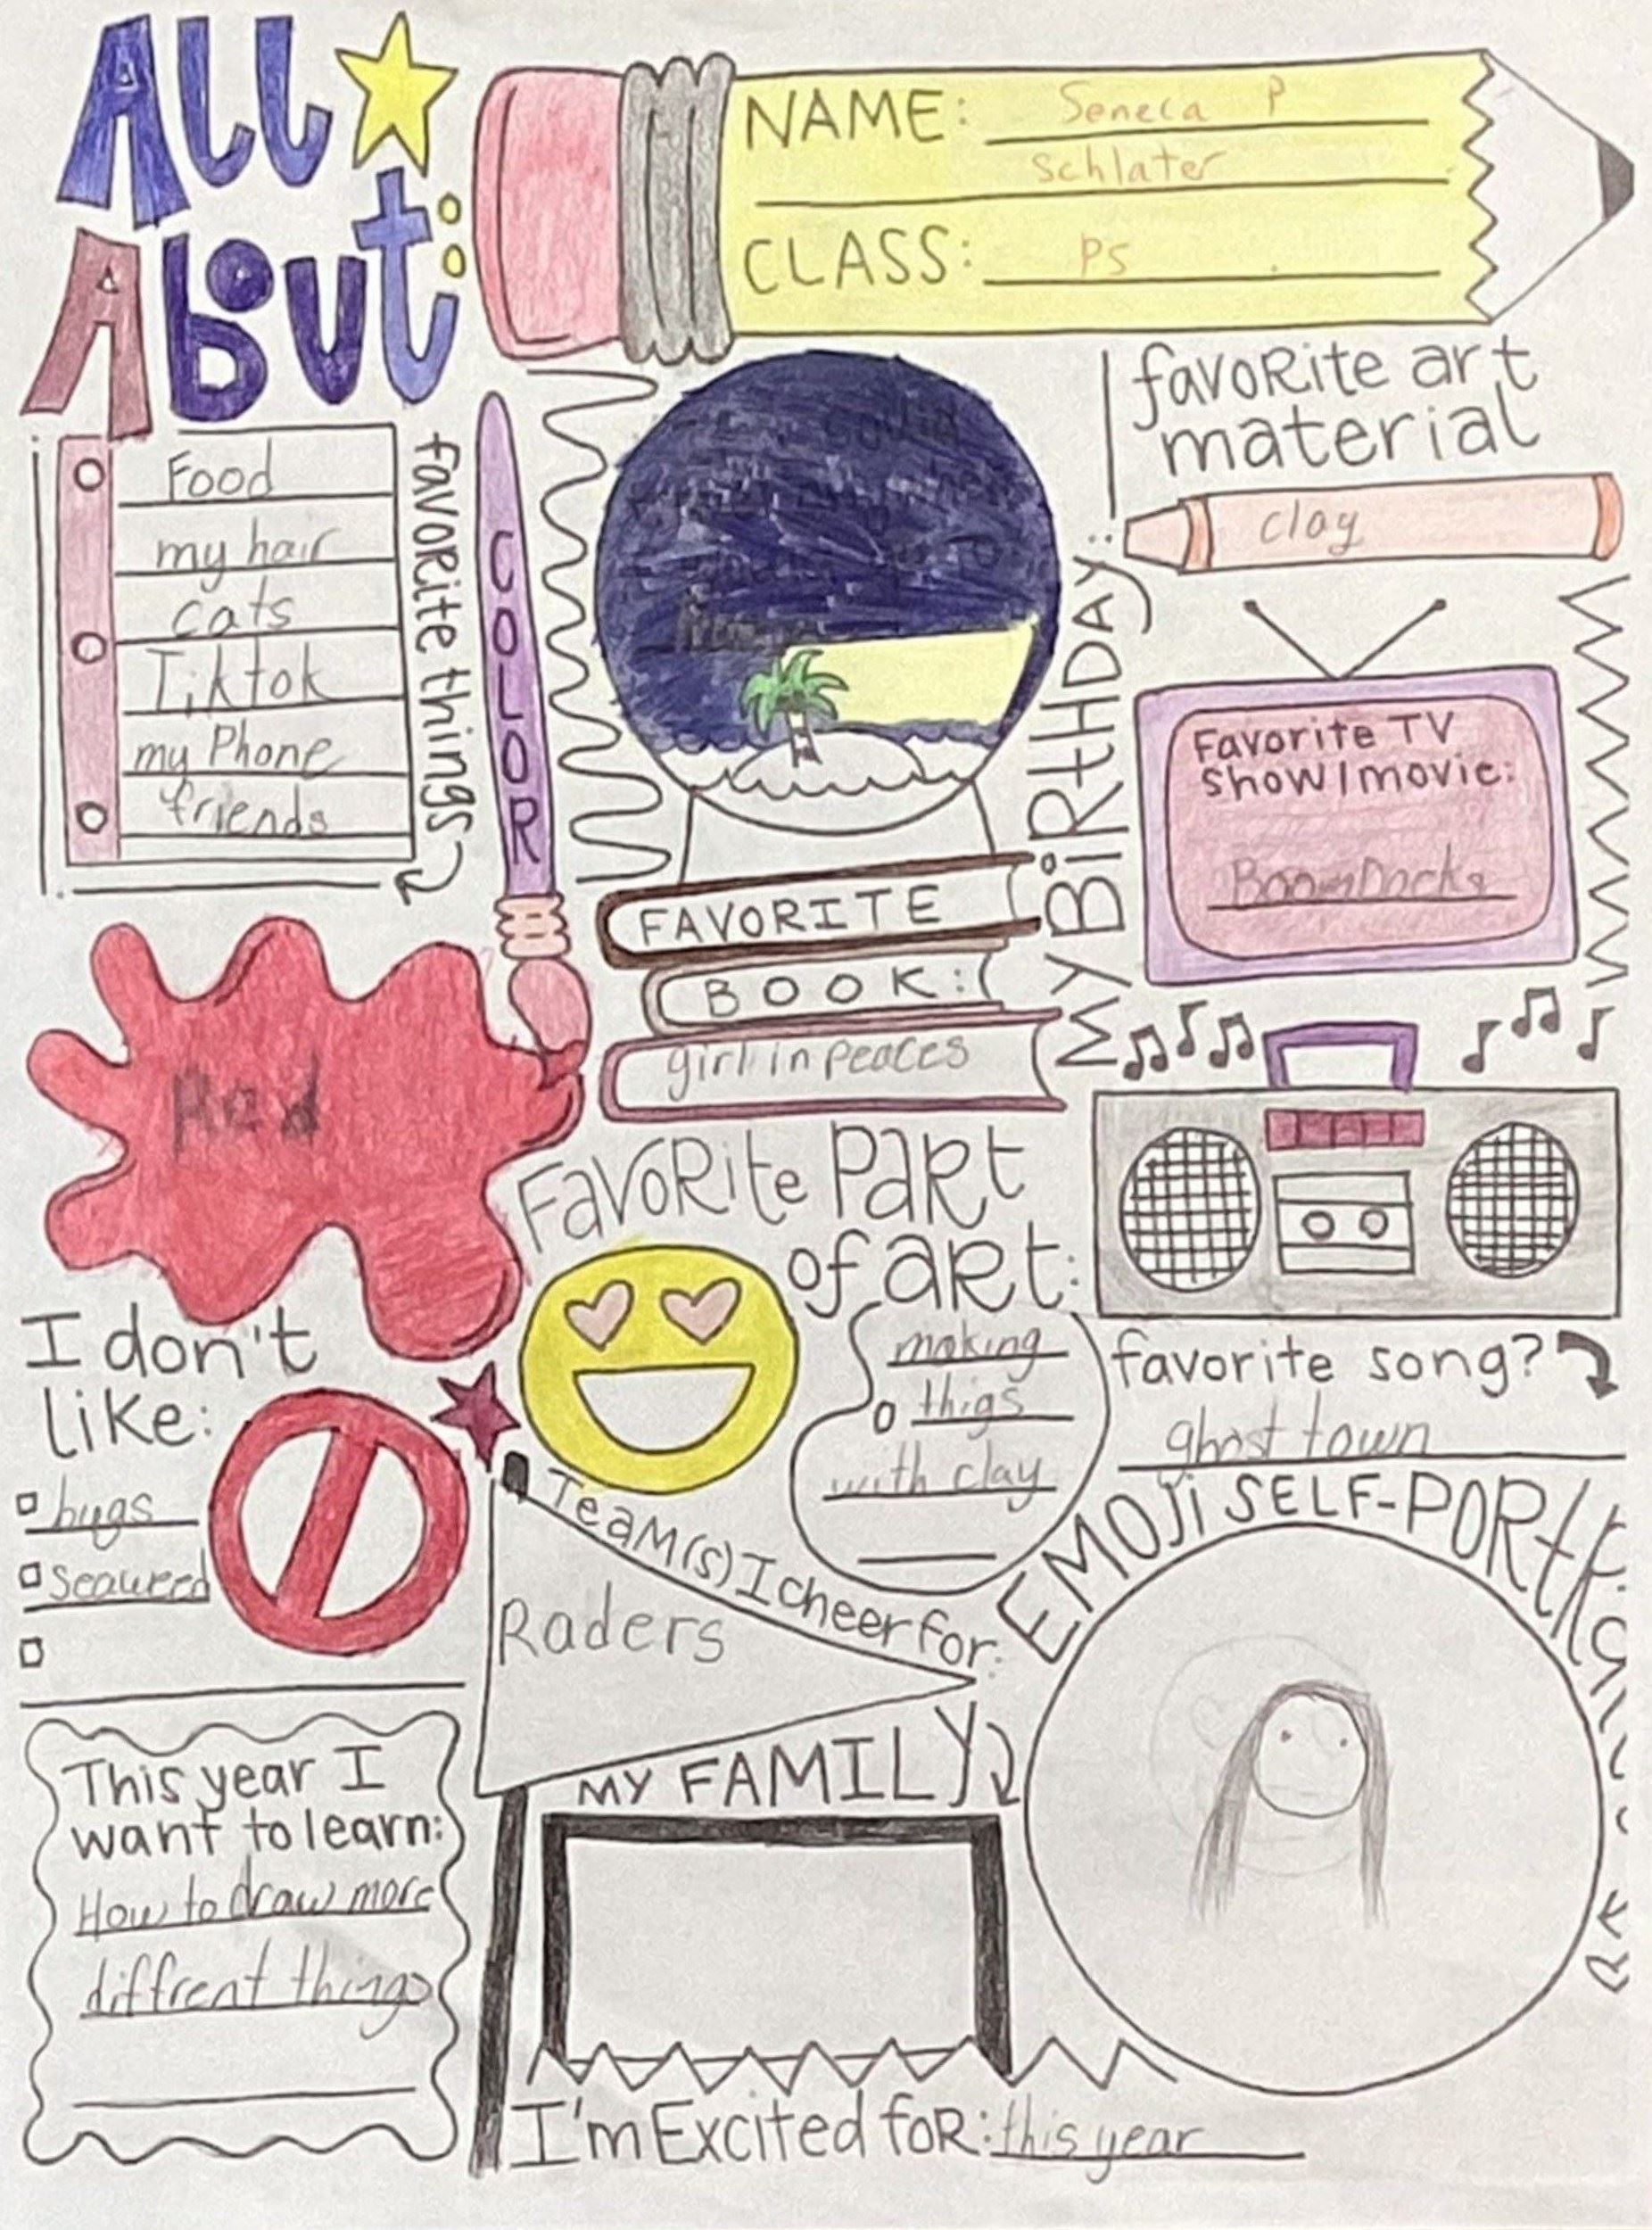 All
About:
NAME: Seneca P
Schlater
CLASS: P5
favorite things
Food
my hair
cats
Tiktok
my Phone
friends
COLOR
Red
MY BiRtHDAY:
favoRite art
material
clay
Favorite TV
show/movie:
BoomDocks
FAVORITE
BOOK:
girl in peaces
FavoRite PaRt
of aRt:
making
thigs
with clay
favorite song?
ghost town
I don't
like:
bugs
seaweed
TeaM(s) I cheer for:
Raders
EMOJi SELF-PORtRait
MY FAMILY
This year I
want to learn:
How to draw more
diffrent things
I'm Excited foR: this year